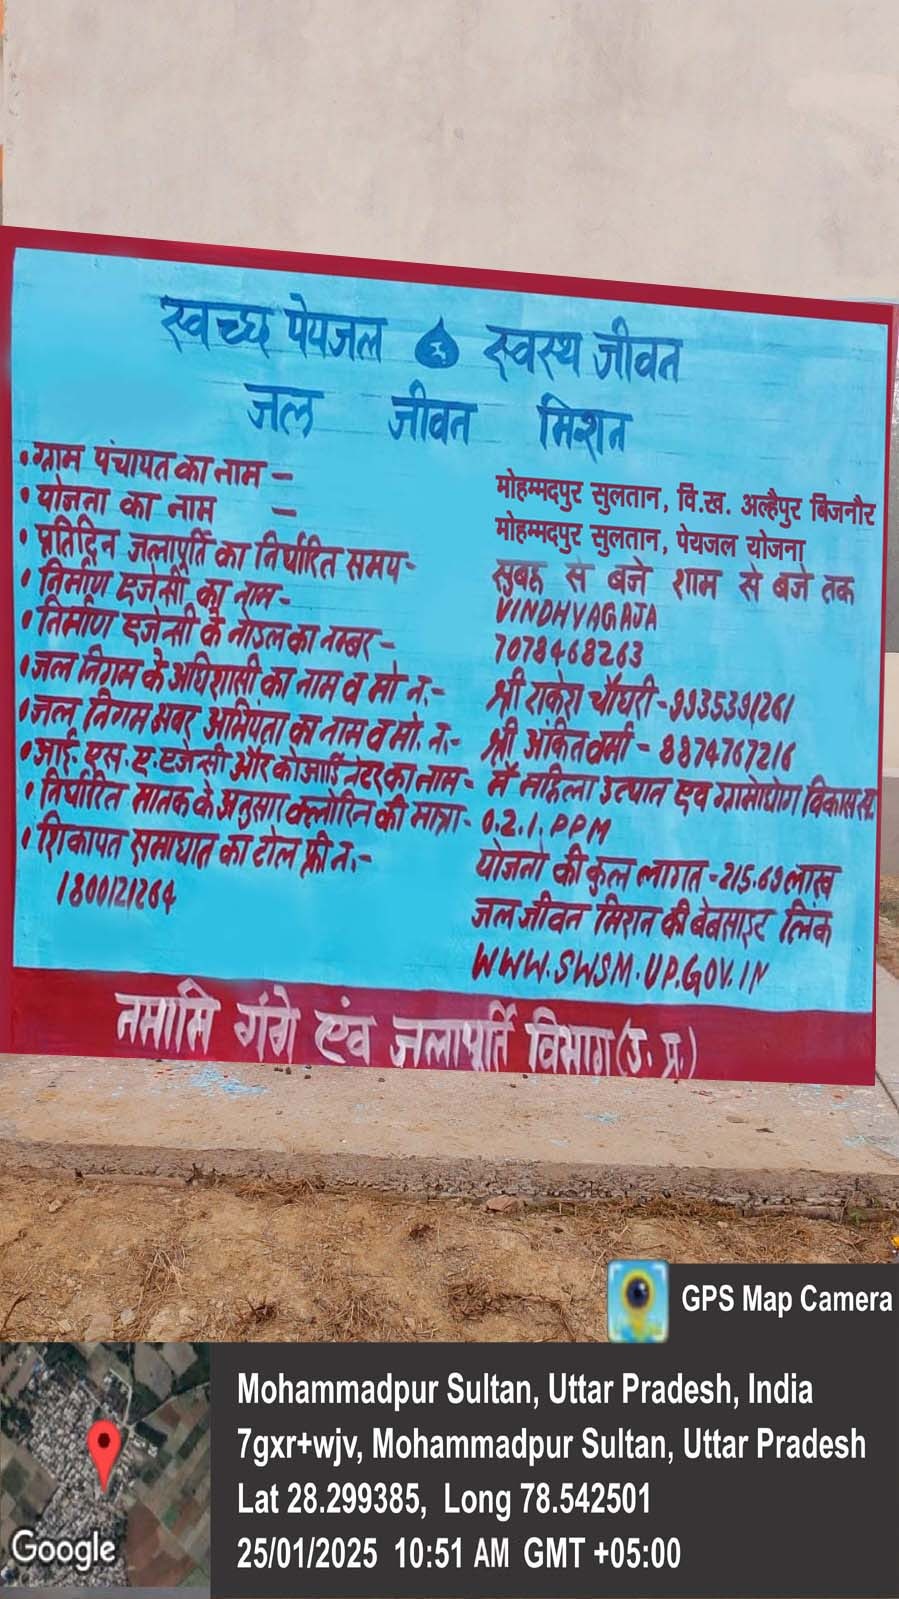 स्वच्छ पेयजल स्वस्थ जीवन
जल जीवन मिशन
• ग्राम पंचायत का नाम - मोहम्मदपुर सुलतान, वि.ख. अल्हैपुर बिजनौर
• योजना का नाम - मोहम्मदपुर सुलतान, पेयजल योजना
• प्रतिदिन जलापूर्ति का निर्धारित समय- सुबह से बजे शाम से बजे तक
• निर्माण एजेन्सी का नाम- VINDHVAGAJA
• निर्माण एजेन्सी के नोडल का नम्बर- 7078468263
• जल निगम के अधिशासी का नाम व मो न.- श्री राकेश चौधरी-9935391261
• जल निगम अवर अभियंता का नाम व मो. न.- श्री अंकित वर्मा - 8874767216
• आई. एस. ए. एजेन्सी और कोआर्डिनेटर का नाम- मै महिला उत्पान एव ग्रामोद्योग विकास सं.
• निर्धारित मानक के अनुसार क्लोरिन की मात्रा- 0.2.1. PPM
• शिकायत समाधान का टोल फ्री न.- योजना की कुल लागत-215.69 लाख
1800121264 जल जीवन मिशन की बेबसाइट लिंक
WWW.SWSM-UP.GOV.IN
नमामि गंगे एंव जलापूर्ति विभाग (उ. प्र.)
GPS Map Camera
Mohammadpur Sultan, Uttar Pradesh, India
7gxr+wjv, Mohammadpur Sultan, Uttar Pradesh
Lat 28.299385, Long 78.542501
25/01/2025 10:51 AM GMT +05:00
Google